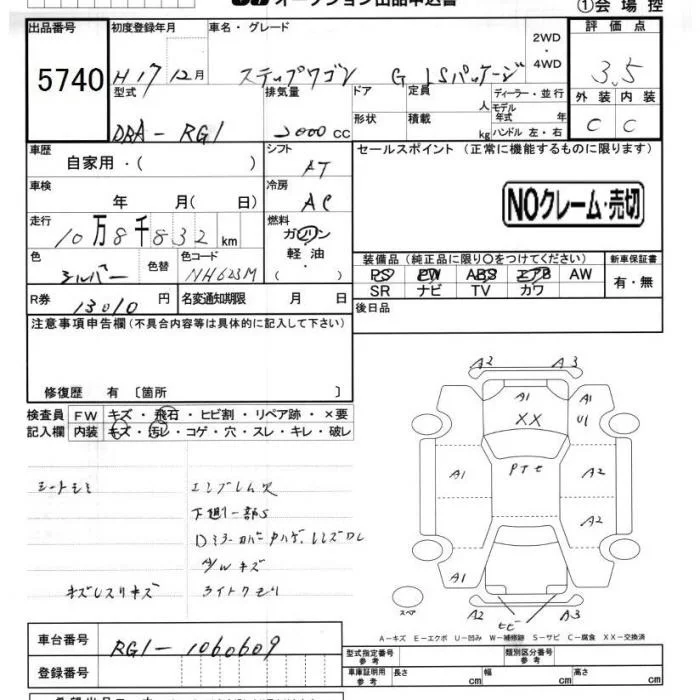 オークション出品申込書
①会場控
出品番号
5740
初度登録年月
H17 12月
車名・グレード
ステップワゴン G LSパッケージ
2WD
・
4WD
評価点
3.5
型式
DBA-RG1
排気量
2000 cc
ドア
形状
定員 人
積載 kg
ディーラー・並行
モデル年式 年
ハンドル 左・右
外装 内装
C C
車歴
自家用・( )
シフト
AT
セールスポイント(正常に機能するものに限ります)
NOクレーム・売切
車検
年 月( 日)
冷房
AC
走行
10万8千832km
燃料
ガソリン
軽油・
( )
色
シルバー
色替
色コード
NH623M
装備品(純正品に限り○をつけてください)
PS PW ABS エアB AW
SR ナビ TV カワ
新車保証書
有・無
R券
13010円
名変通知期限 月 日
後日品
注意事項申告欄(不具合内容等は具体的に記入して下さい)
修復歴 有〔箇所 〕
検査員 FW キズ・飛石・ヒビ割・リペア跡・×要
記入欄 内装 キズ・汚レ・コゲ・穴・スレ・キレ・破レ
シートシミ エンブレム欠
下廻り一部S
A/Wキズ
キズレスリキズ ライトクモリ
A2 A3
A1
XX
A1
U1
A1
A2
A2
A1
A2 A3
ヒビ
スペア
A-キズ E-エクボ U-凹み W-補修跡 S-サビ C-腐食 XX-交換済
車台番号
RG1-1060609
登録番号
型式指定番号
参考
類別区分番号
参考
車庫証明用
参考
長さ cm 幅 cm 高さ cm